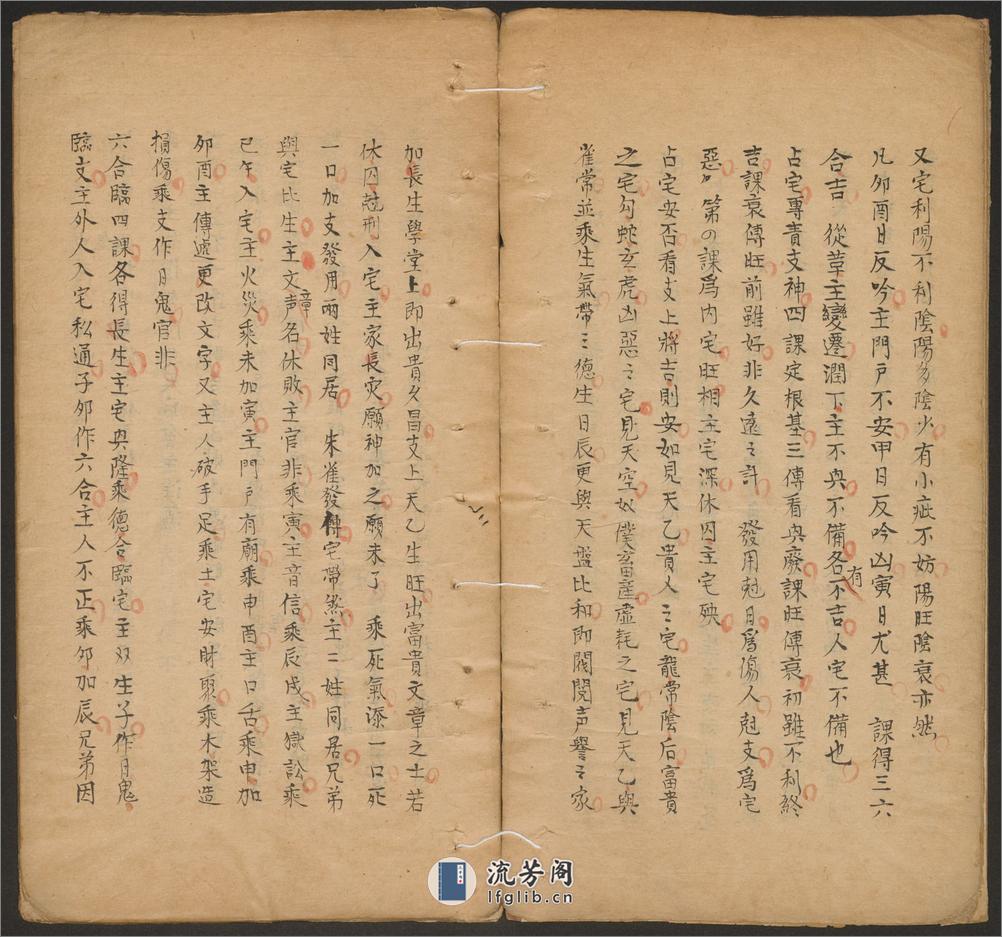 又宅利陽不利陰陽多陰少有小疵不妨陽旺陰衰亦然
凡夘酉日反吟主門戶不安甲日反吟凶寅日尤甚　課得三六
合吉　從革主變遷潤下主不與不備各有不吉人宅不備也
占宅專責支神四課定根基三傳看與廢課旺傳衰初雖不利終
吉課衰傳旺前雖好非久遠之計　發用尅日爲傷人尅支爲宅
惡　第の課爲內宅旺相主宅深休囚主宅殃
占宅安否看支上將吉則安如見天乙貴人之宅龍常陰后富貴
之宅勾蛇玄虎凶惡之宅見天空奴僕畜產虛耗之宅見天乙與
雀常並乘生氣帶三德生日辰更與天盤比和即閥閱声譽之家
加長生學堂上即出貴夕昌支上天乙生旺出富貴文章之士若
休囚尅刑入宅主家長灾願神加之願未了　乘死氣添一口死
一口加支發用兩姓同居　朱雀發傳宅帶煞主二姓同居兄弟
與宅比生主文章声名休敗主官非乘寅主音信乘辰戌主獄訟乘
巳午入宅主火災乘未加寅主門戶有廟乘申酉主口舌乘申加
夘酉主傳遞更改文字又主人破手足乘土宅安財聚乘木架造
損傷乘支作日鬼官非
六合臨四課各得長生主宅興隆乘德合臨宅主双生子作日鬼
臨支主外人入宅私通子夘作六合主人不正乘夘加辰兄弟因
流芳阁
lfglib.cn